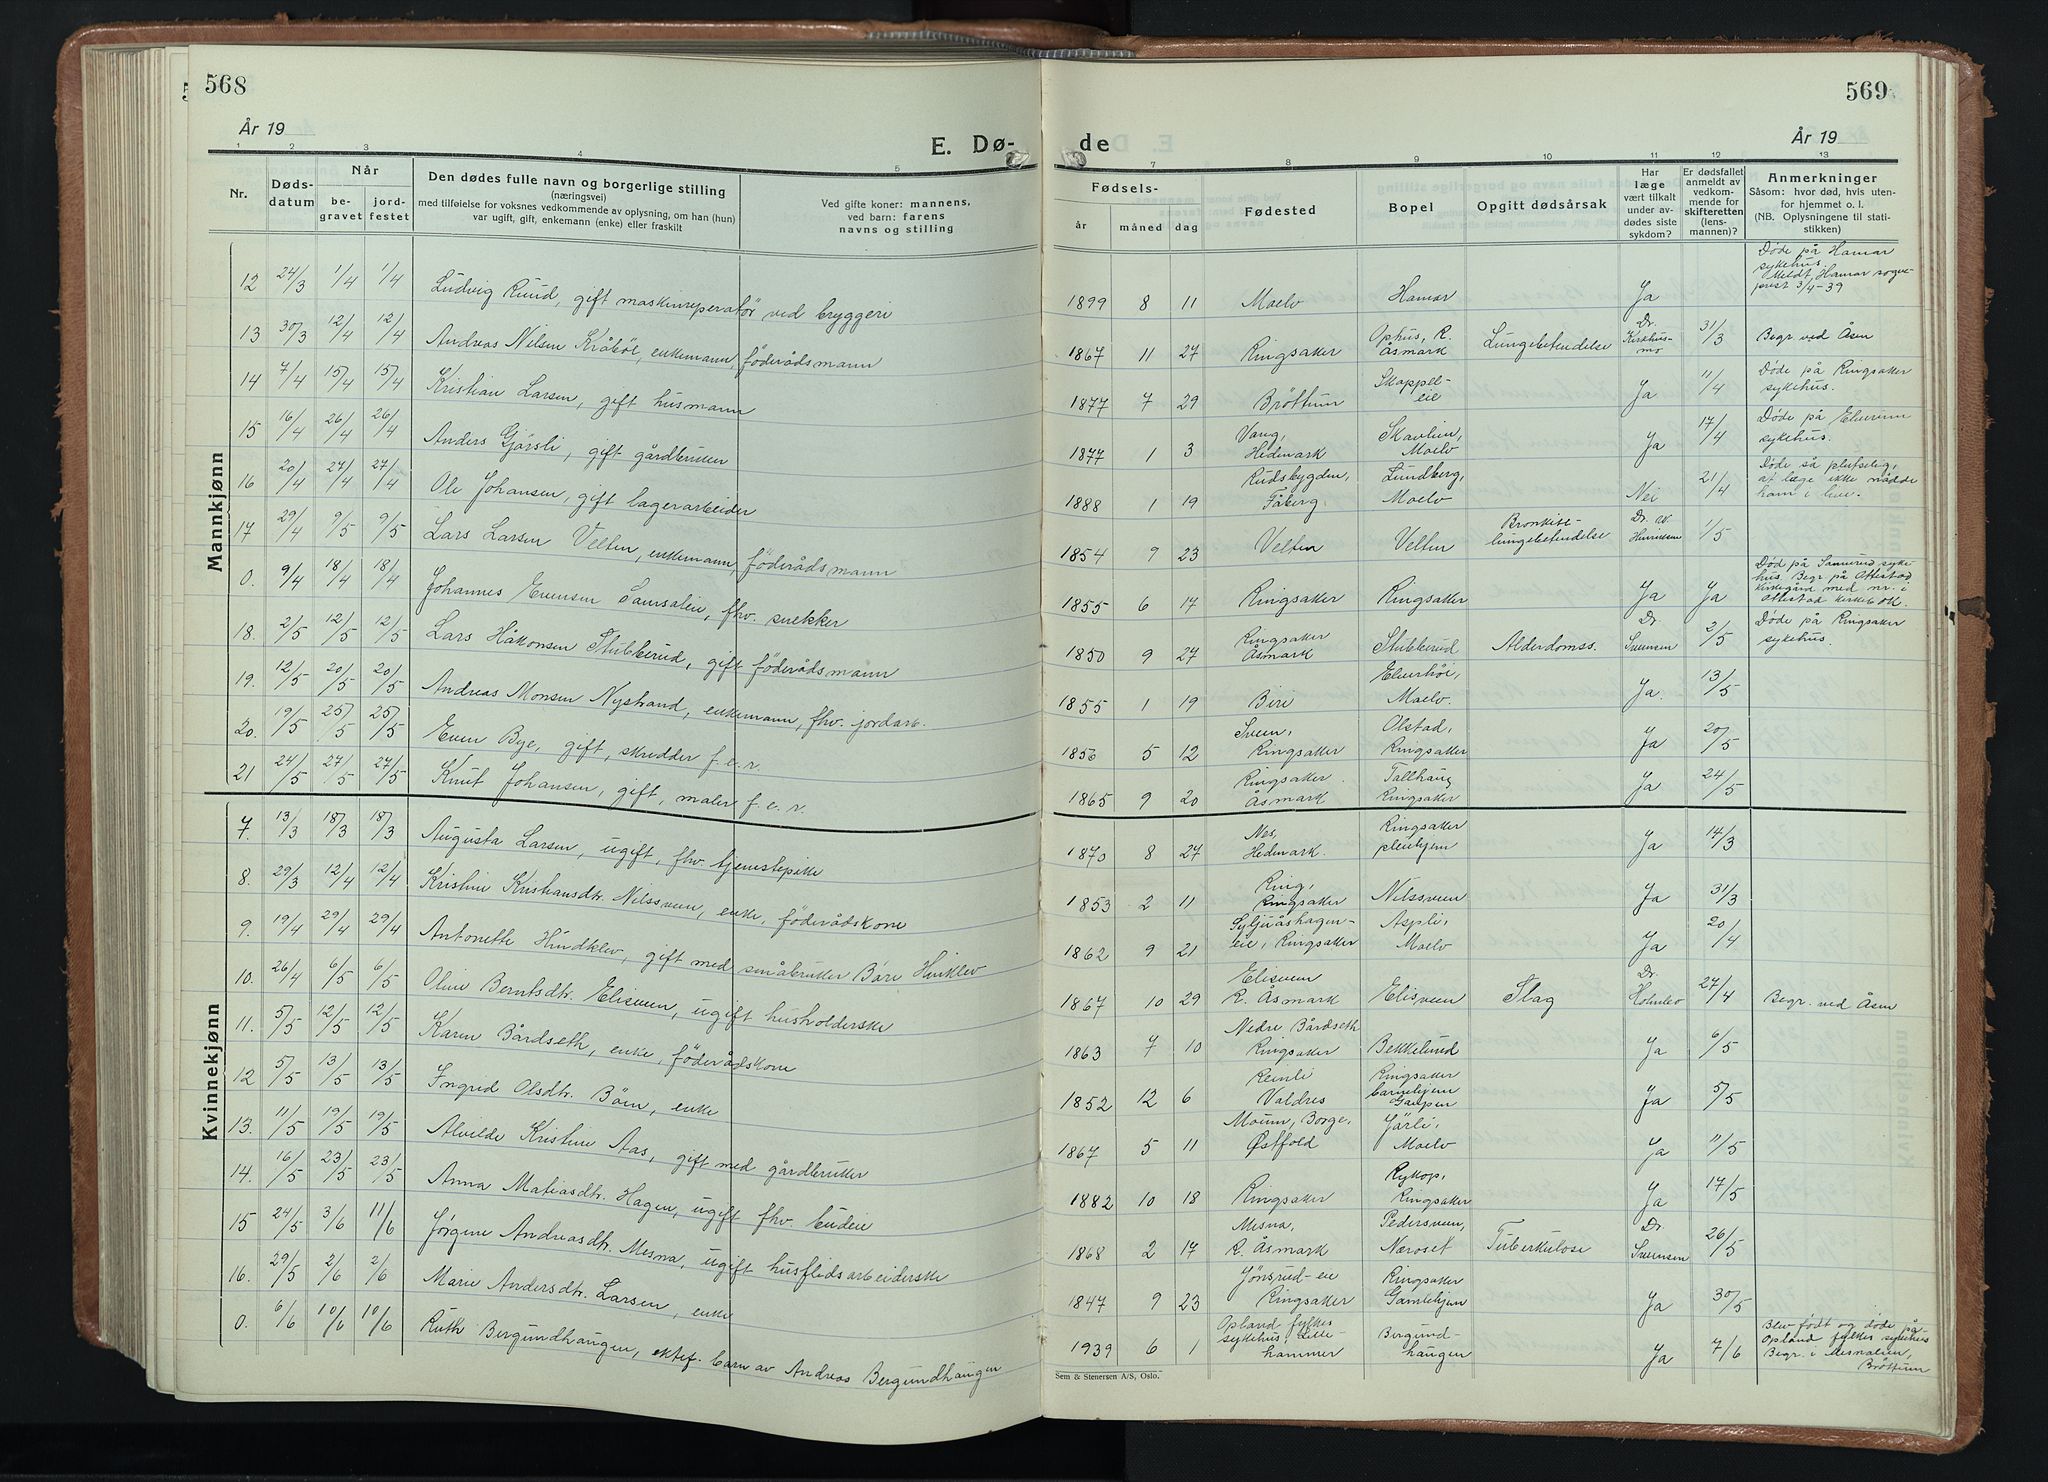 568
År 19
E. Dø-
1 2 3 4 5
Nr.
Døds-
datum
Når
be-
gravet
jord-
festet
Den dødes fulle navn og borgerlige stilling
(næringsvei)
med tilføielse for voksnes vedkommende av oplysning, om han (hun)
var ugift, gift, enkemann (enke) eller fraskilt
Ved gifte koner: mannens,
ved barn: farens
navns og stilling
Mannkjønn
12 24/3 1/4 1/4 Ludvig Ruud, gift maskinreperatör ved bryggeri
13 30/3 12/4 12/4 Andreas Nilsen Kråböl, enkemann, föderådsmann
14 7/4 15/4 15/4 Kristian Larsen, gift husmann
15 16/4 26/4 26/4 Anders Gjörsli, gift gårdbruker
16 20/4 27/4 27/4 Ole Johansen, gift lagerarbeider
17 29/4 9/5 9/5 Lars Larsen Velten, enkemann, föderådsmann
0. 9/4 18/4 18/4 Johannes Evensen Samsalen, fhv. snekker
18. 2/5 12/5 12/5 Lars Håkonsen Stubberud, gift föderådsmann
19. 12/5 20/5 20/5 Andreas Monsen Nystrand, enkemann, fhv. jordarb.
20. 19/5 25/5 25/5 Even Bye, gift, skredder f.e.r.
21 24/5 27/5 27/5 Knut Johansen, gift, maler f.e.r.
Kvinnekjønn
7. 13/3 18/3 18/3 Augusta Larsen, ugift, fhv. tjenestepike
8. 29/3 12/4 12/4 Kristine Kristiansdtr. Nilssveen, enke, föderådskone
9. 19/4 29/4 29/4 Antonette Hindklev, gift med småbruker Båre Hinklev
10. 26/4 6/5 6/5 Oline Berntsdtr. Elisveen, ugift husholderske
11. 5/5 12/5 12/5 Karen Bårdseth, enke, föderådskone
12 5/5 13/5 13/5 Ingrid Olsdtr. Böen, enke
13. 11/5 19/5 19/5 Alvilde Kristine Aas, gift med gårdbruker
14. 16/5 23/5 23/5 Anna Matiasdtr. Hagen, ugift fhv. budeie
15 24/5 3/6 11/6 Jørgine Andreasdtr. Mesna, ugift husflidsarbeiderske
16. 29/5 2/6 2/6 Marie Andersdtr. Larsen, enke
0. 6/6 10/6 10/6 Ruth Bergundhaugen, ektef. barn av Andreas Bergundhaugen
569
de
År 19
7 8 9 10 11 12 13
Fødsels-
år måned dag
Fødested
Bopel
Opgitt dødsårsak
Har
læge
vært tilkalt
under av-
dødes siste
sykdom?
Er dødsfallet
anmeldt av
vedkom-
mende for
skifteretten
(lens-
mannen)?
Anmerkninger
Såsom: hvor død, hvis uten-
for hjemmet o. l.
(NB. Oplysningene til stati-
stikken)
Døde på Hamar
sykehus.
Meldt Hamar sogne-
prest 3/4-39
1899 8 11 Moelv Hamar Ja
1867 11 27 Ringsaker Ophus, R.
Åsmark Lungebetendelse Dr.
Kirkhus-
mo 31/3 Begr ved Åsen
1877 7 29 Bröttum Skappel-
eie Ja 11/4 Døde på Ringsaker
sykehus.
1877 1 3 Vang,
Hedmark Skavlien,
Moelv Ja 17/4 Døde på Elverum
sykehus.
1888 1 19 Rudsbygden,
Fåberg Lundberg,
Moelv Nei 21/4 Døde så plutselig,
at læge ikke nådde
ham i live.
1854 9 23 Velten Velten Bronkitt-
lungebetendelse Dr. W.
Hinriksen 1/5
1855 6 17 Ringsaker Ringsaker Ja Ja Død på Sanerud syke-
hus. Begr på Ottestad
kirkegård med nr. i
Ottestad kirkebok.
1850 9 27 Ringsaker
Åsmark Stubberud Alderdomss. Dr.
Svensen 2/5 Døde på Ringsaker
sykehus.
1855 1 19 Biri Elverhöi,
Moelv Ja. 13/5
1856 5 12 Sveen,
Ringsaker Olstad,
Ringsaker Ja 20/5
1865 9 20 Ringsaker.
Åsmark Tallhaug
Ringsaker Ja 24/5
1870 8 27 Nes,
Hedmark. Ringsaker
pleiehjem Ja 14/3
1853 2 11 Ring,
Ringsaker Nilssveen Ja 31/3
1862 9 21 Syljuåshagen-
eie, Ringsaker Aspli,
Moelv Ja 20/4
1867 10 29 Elisveen
R. Åsmark Elisveen Slag Dr.
Holmbo 27/4 Begr. ved Åsen
1863 7 10 Nedre Bårdseth
Ringsaker Bekkelund Ja 6/5
1852 12 6 Reinli
Valdres Ringsaker
barnehjem
Gaupen Ja 5/5
1867 5 11 Moum, Borge,
Østfold Järli,
Moelv Ja 11/5
1882 10 18 Ringsaker Rykop,
Ringsaker Ja 17/5
1868 2 17 Mesna,
R. Åsmark Pedersveen,
Næroset Tuberkulose Dr.
Svensen 26/5
1847 9 23 Jönsrud-eie
Ringsaker Ringsaker
Gamlehjem Ja 30/5
1939 6 1 Opland fylkes
sykehus, Lille-
hammer Bergund-
haugen Ja 7/6 Blev født og døde på
Opland fylkes sykehus
Begr. i Mesnalien,
Bröttum
Sem & Stenersen A/S, Oslo.